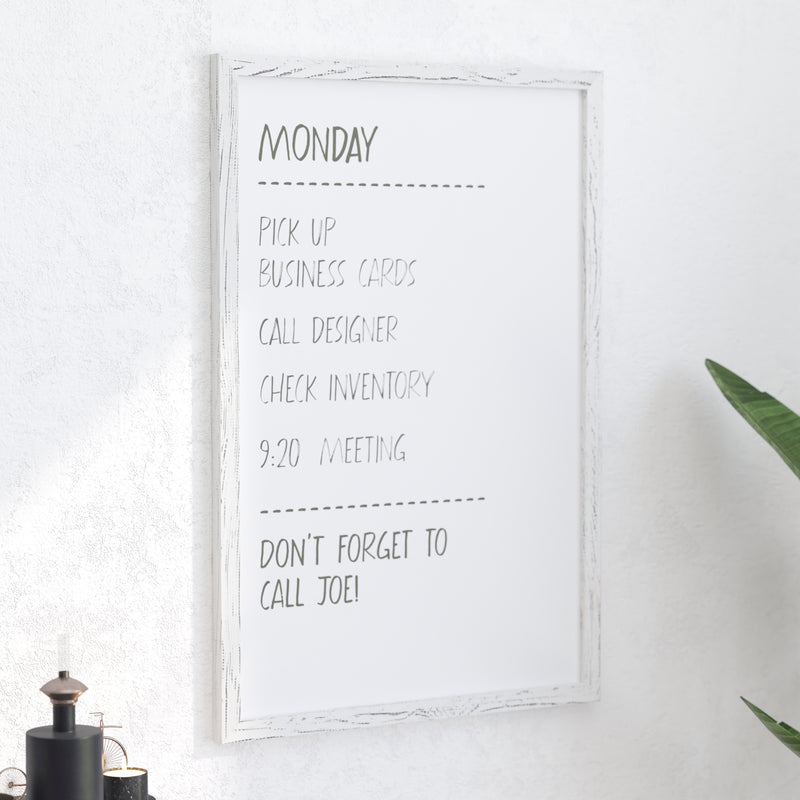 MONDAY
PICK UP
BUSINESS CARDS
CALL DESIGNER
CHECK INVENTORY
9:20 MEETING
DON'T FORGET TO
CALL JOE!